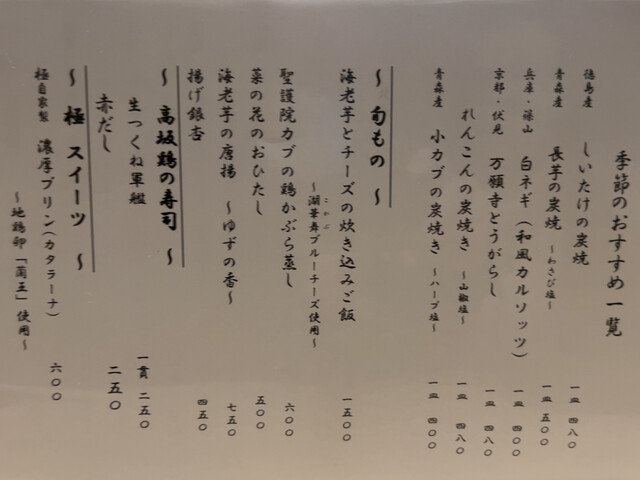 季節のおすすめ一覧
徳島産 しいたけの炭焼 一本 四八〇
青森産 長芋の炭焼 ~わさび塩~ 一本 五〇〇
兵庫・篠山 白ネギ(和風カルソッツ) 一本 四〇〇
京都・伏見 万願寺とうがらし 一本 四八〇
れんこんの炭焼き ~山椒塩~ 一本 四八〇
青森産 小カブの炭焼き ~ハーブ塩~ 一本 四〇〇
~ 旬もの ~
海老芋とチーズの炊き込みご飯 一五〇〇
~湖華舞ブルーチーズ使用~
こかぶ
聖護院カブの鶏かぶら蒸し 六〇〇
菜の花のおひたし 五〇〇
海老芋の唐揚 ~ゆずの香~ 七五〇
揚げ銀杏 四五〇
~ 高坂鶏の寿司 ~
生つくね軍艦 一貫 二五〇
赤だし 二五〇
~ 極 スイーツ ~
極自家製 濃厚プリン(カタラーナ) 六〇〇
~地鶏卵「蘭王」使用~